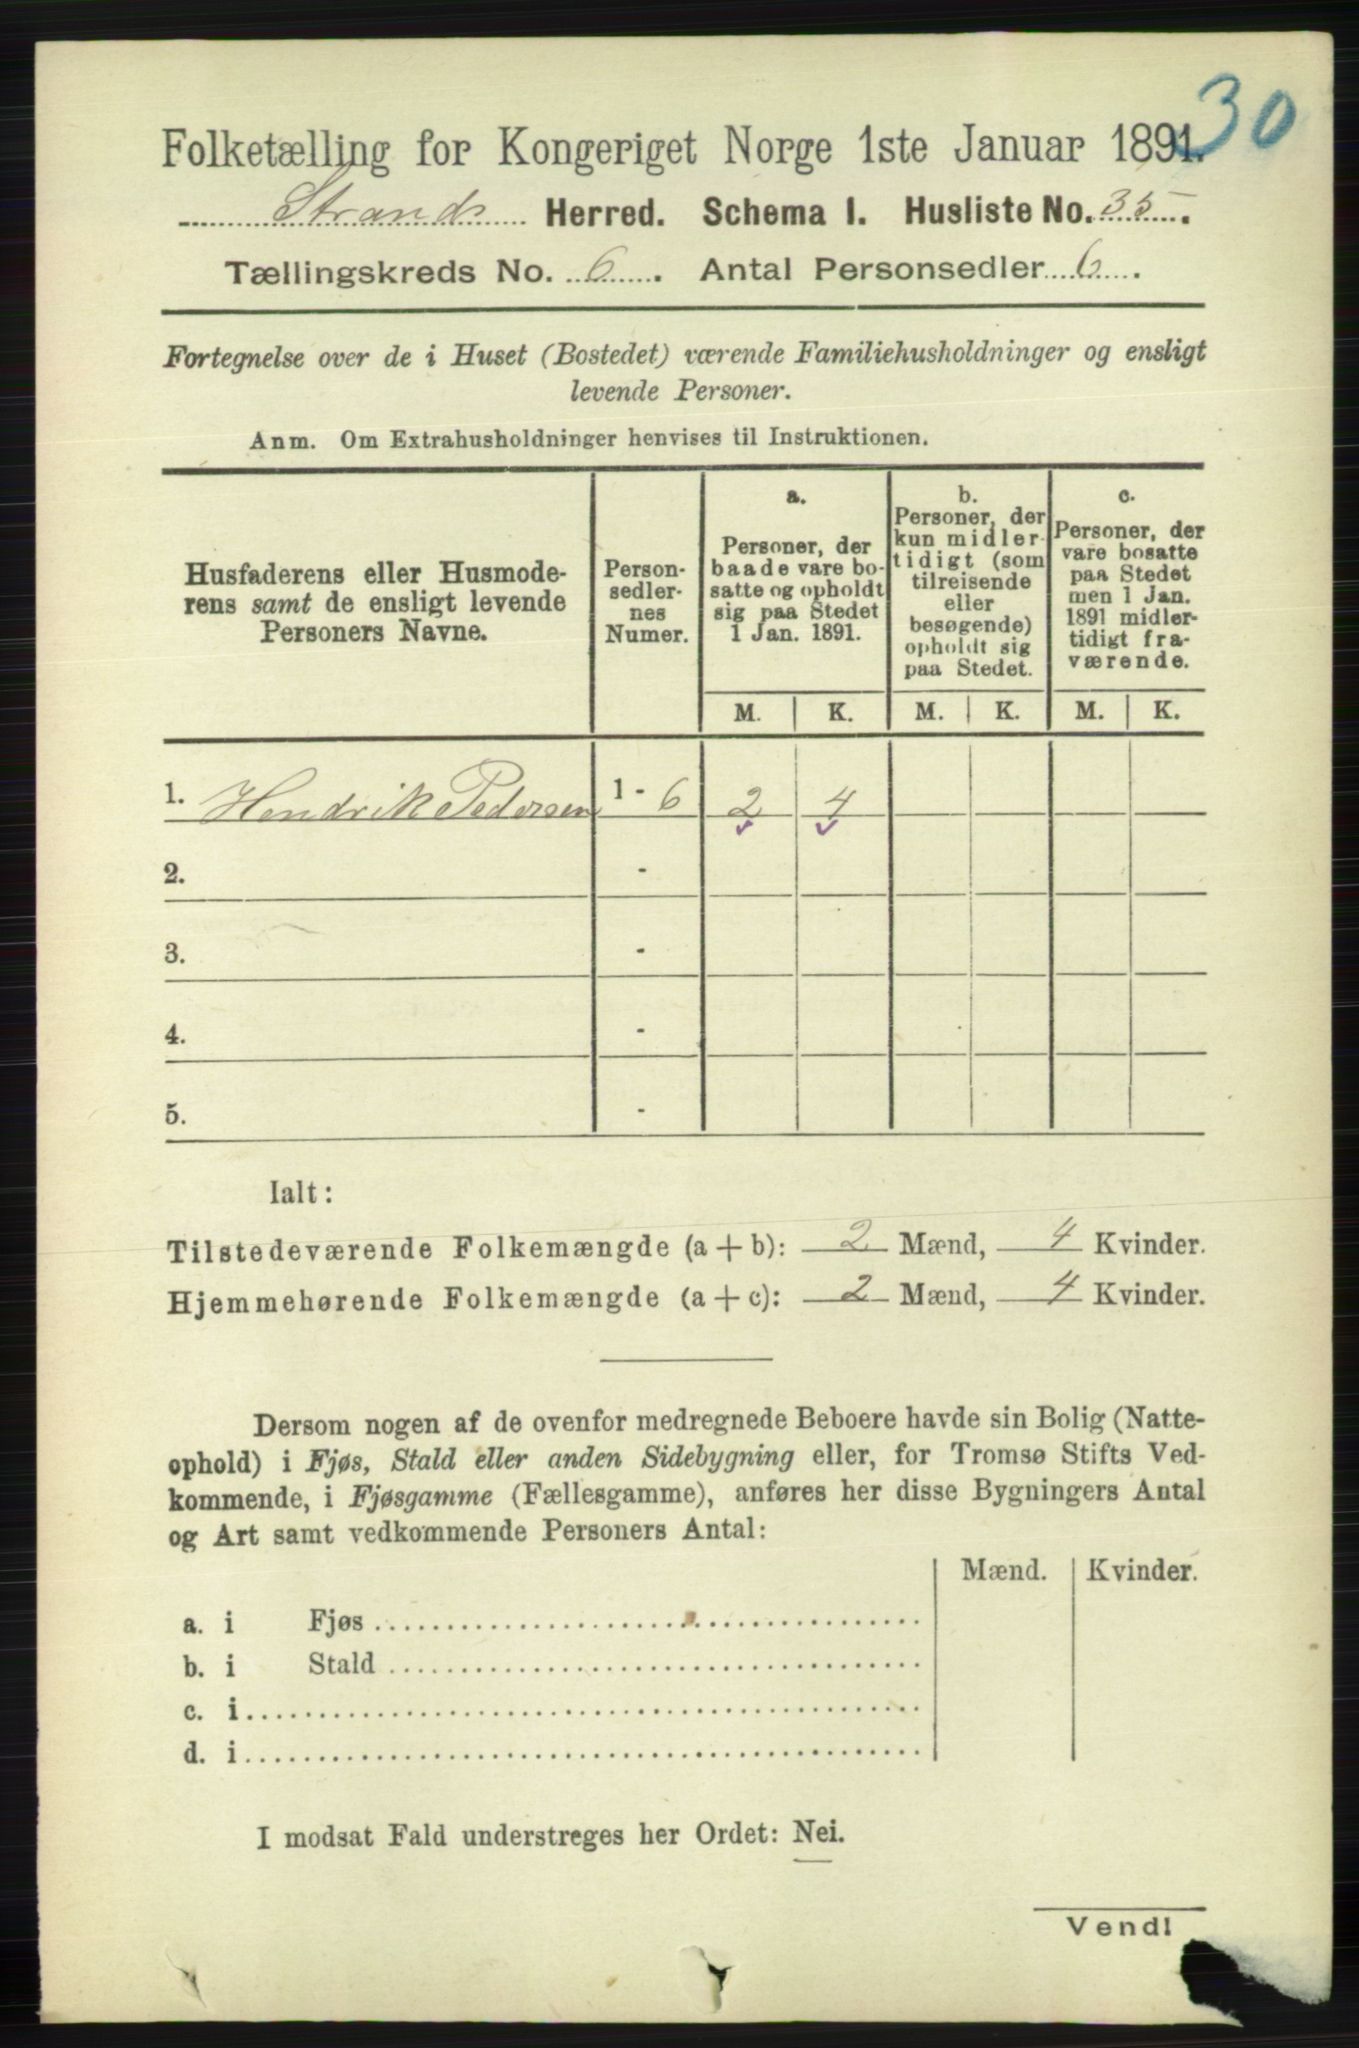 30
Folketælling for Kongeriget Norge 1ste Januar 1891.
Strands Herred. Schema I. Husliste No. 35.
Tællingskreds No. 6. Antal Personsedler 6.
Fortegnelse over de i Huset (Bostedet) værende Familiehusholdninger og ensligt
levende Personer.
Anm. Om Extrahusholdninger henvises til Instruktionen.
Husfaderens eller Husmode-
rens samt de ensligt levende
Personers Navne.
Person-
sedler-
nes
Numer.
a.
Personer, der
baade vare bo-
satte og opholdt
sig paa Stedet
1 Jan. 1891.
b.
Personer, der
kun midler-
tidigt (som
tilreisende
eller
besøgende)
opholdt sig
paa Stedet.
c.
Personer, der
vare bosatte
paa Stedet
men 1 Jan.
1891 midler-
tidigt fra-
værende.
M. K. M. K. M. K.
1. Hendrik Pedersen 1 - 6 2 4
2. -
3. -
4. -
5. -
Ialt:
Tilstedeværende Folkemængde (a + b): 2 Mænd, 4 Kvinder.
Hjemmehørende Folkemængde (a + c): 2 Mænd, 4 Kvinder.
Dersom nogen af de ovenfor medregnede Beboere havde sin Bolig (Natte-
ophold) i Fjøs, Stald eller anden Sidebygning eller, for Tromsø Stifts Ved-
kommende, i Fjøsgamme (Fællesgamme), anføres her disse Bygningers Antal
og Art samt vedkommende Personers Antal:
Mænd. Kvinder.
a. i Fjøs
b. i Stald
c. i
d. i
I modsat Fald understreges her Ordet: Nei.
Vend!